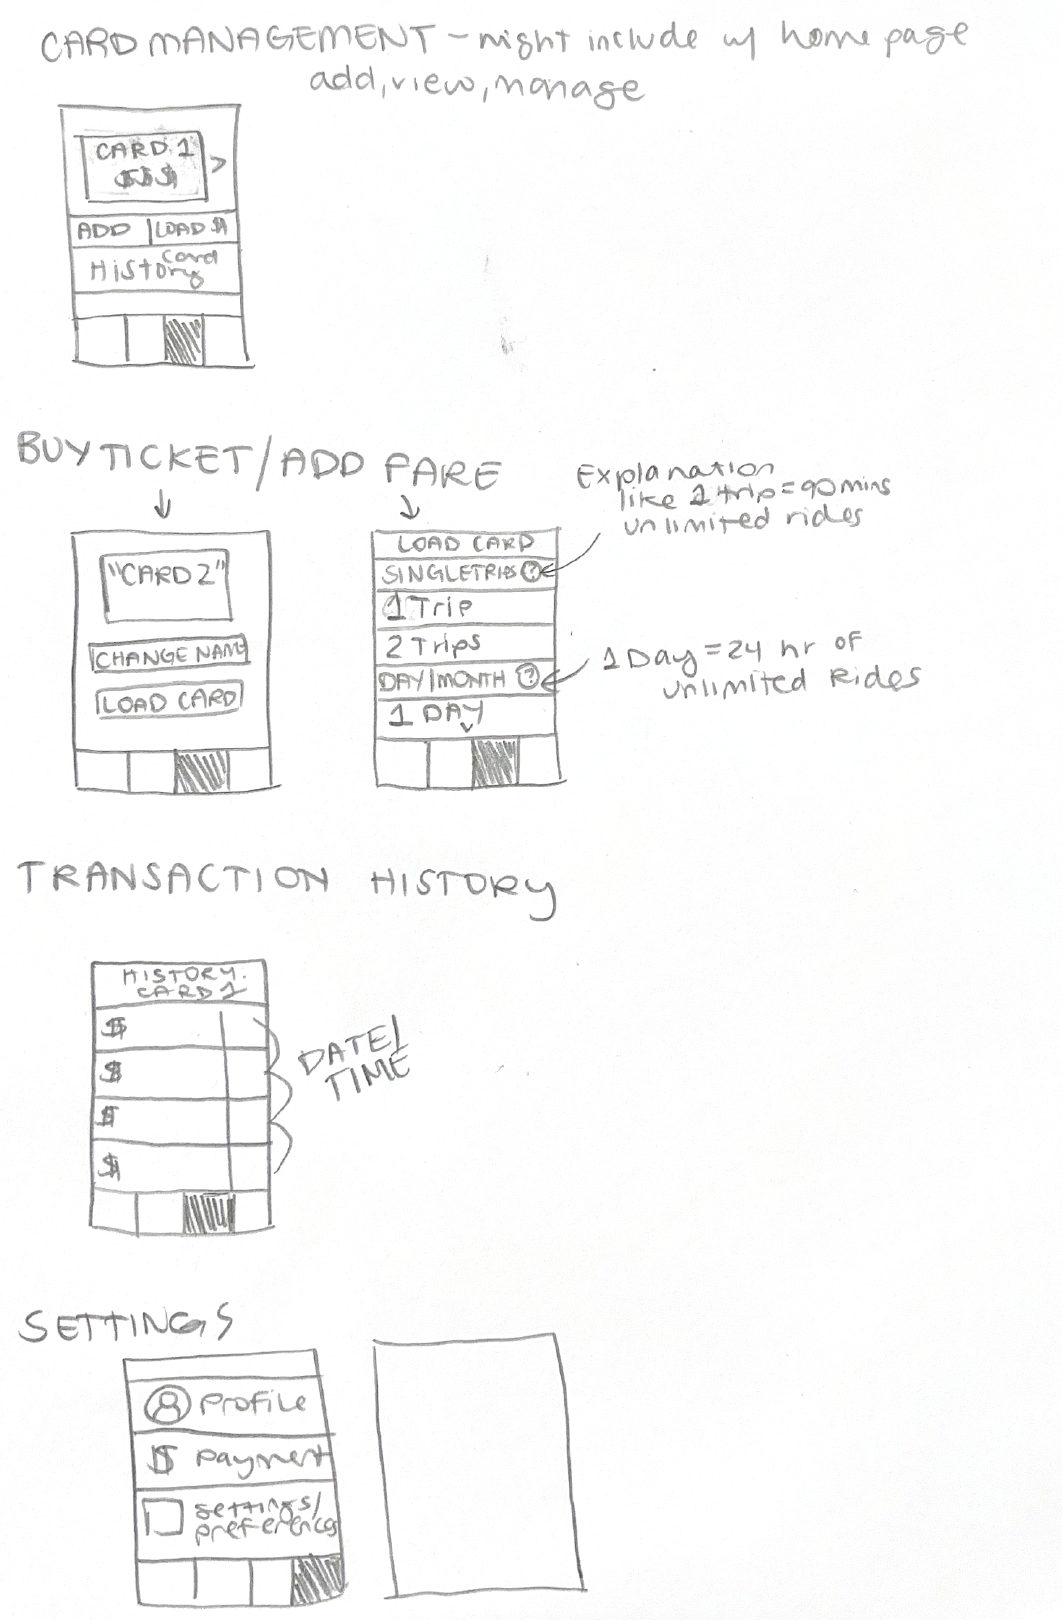 CARD MANAGEMENT - might include w/ home page
add, view, manage
CARD 1
$$$
>
ADD
LOAD $
Card
History
BUY TICKET/ADD FARE
"CARD 2"
CHANGE NAME
LOAD CARD
LOAD CARD
SINGLE TRIPS ?
1 Trip
2 Trips
DAY/MONTH ?
1 DAY
Explanation
like 1 trip = 90 mins
unlimited rides
1 Day = 24 hr of
unlimited Rides
TRANSACTION HISTORY
HISTORY.
CARD 1
$
$
$
$
DATE/
TIME
SETTINGS
Profile
$ payment
settings/
preferences